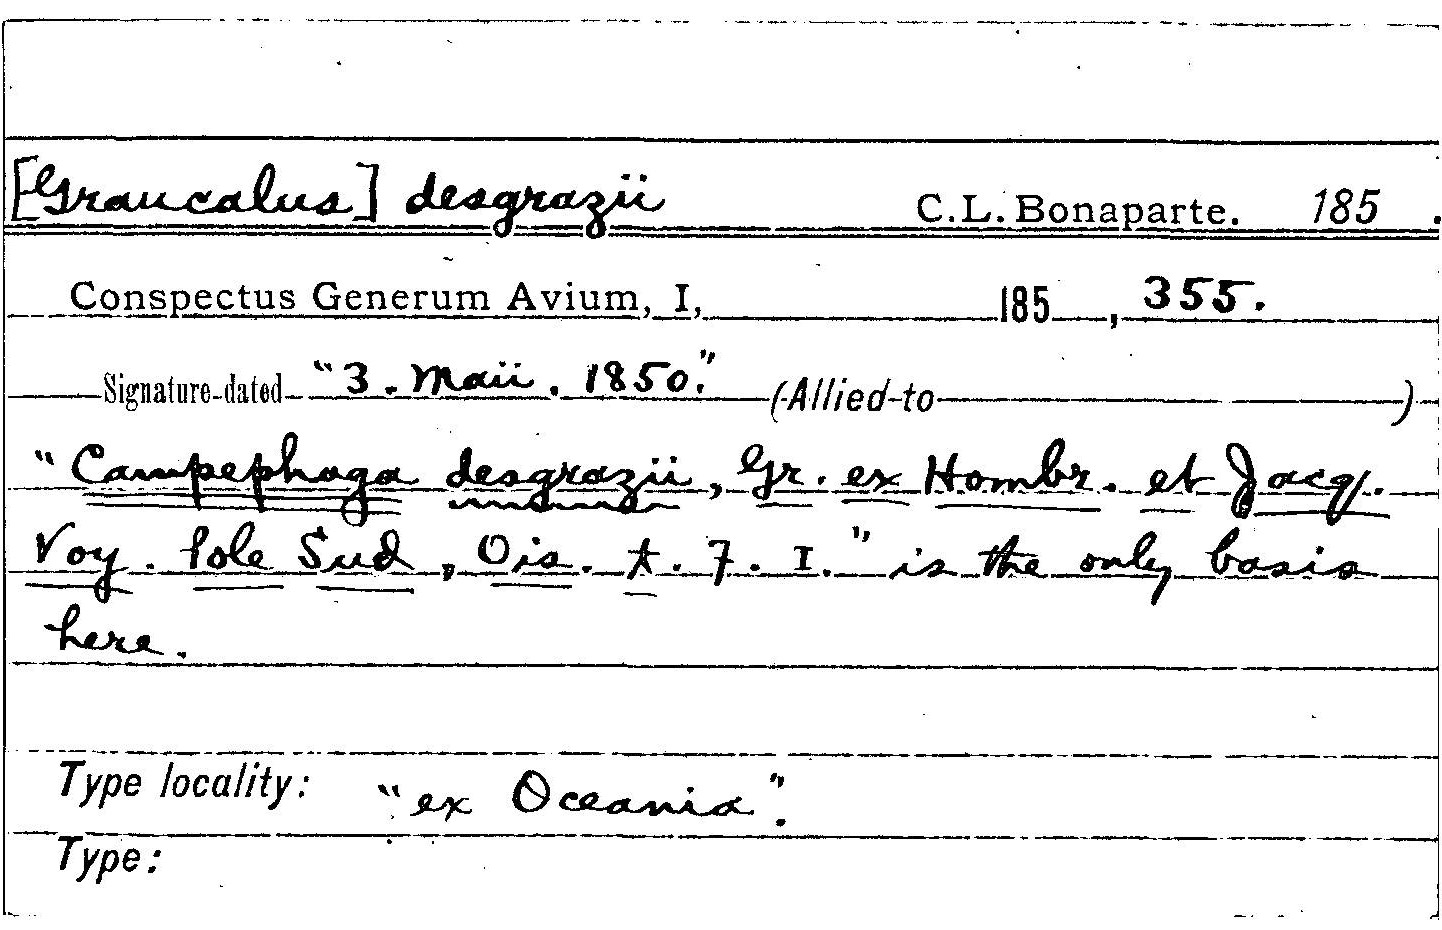 [Graucalus] desgrazii C.L. Bonaparte. 185 .
Conspectus Generum Avium, I, 185 , 355.
Signature dated "3. Maii. 1850." (Allied to )
"Campephaga desgrazii, Gr. ex Hombr. et Jacq.
Voy. Pole Sud, Ois. t. 7. I." is the only basis
here.
Type locality: "ex Oceania".
Type: